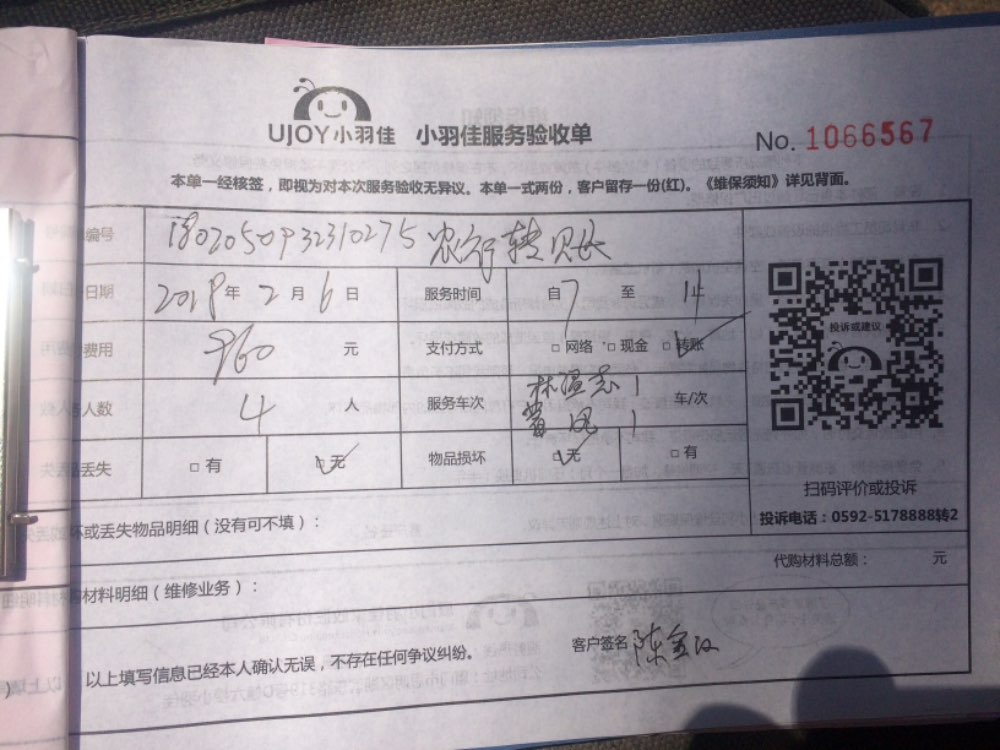 UJOY小羽佳 小羽佳服务验收单
No. 1066567
本单一经核签，即视为对本次服务验收无异议。本单一式两份，客户留存一份(红)。《维保须知》详见背面。
编号 1802050932310275 农行转账
日期 2018年2月6日 服务时间 自7至14
费用 960元 支付方式 □网络 □现金 □转账
人数 4人 服务车次 林温志1 1 车/次
丢失 □有 □无 物品损坏 □无 □有
投诉或建议
扫码评价或投诉
投诉电话：0592-5178888转2
坏或丢失物品明细（没有可不填）：
代购材料总额： 元
材料明细（维修业务）：
以上填写信息已经本人确认无误，不存在任何争议纠纷。
客户签名 陈